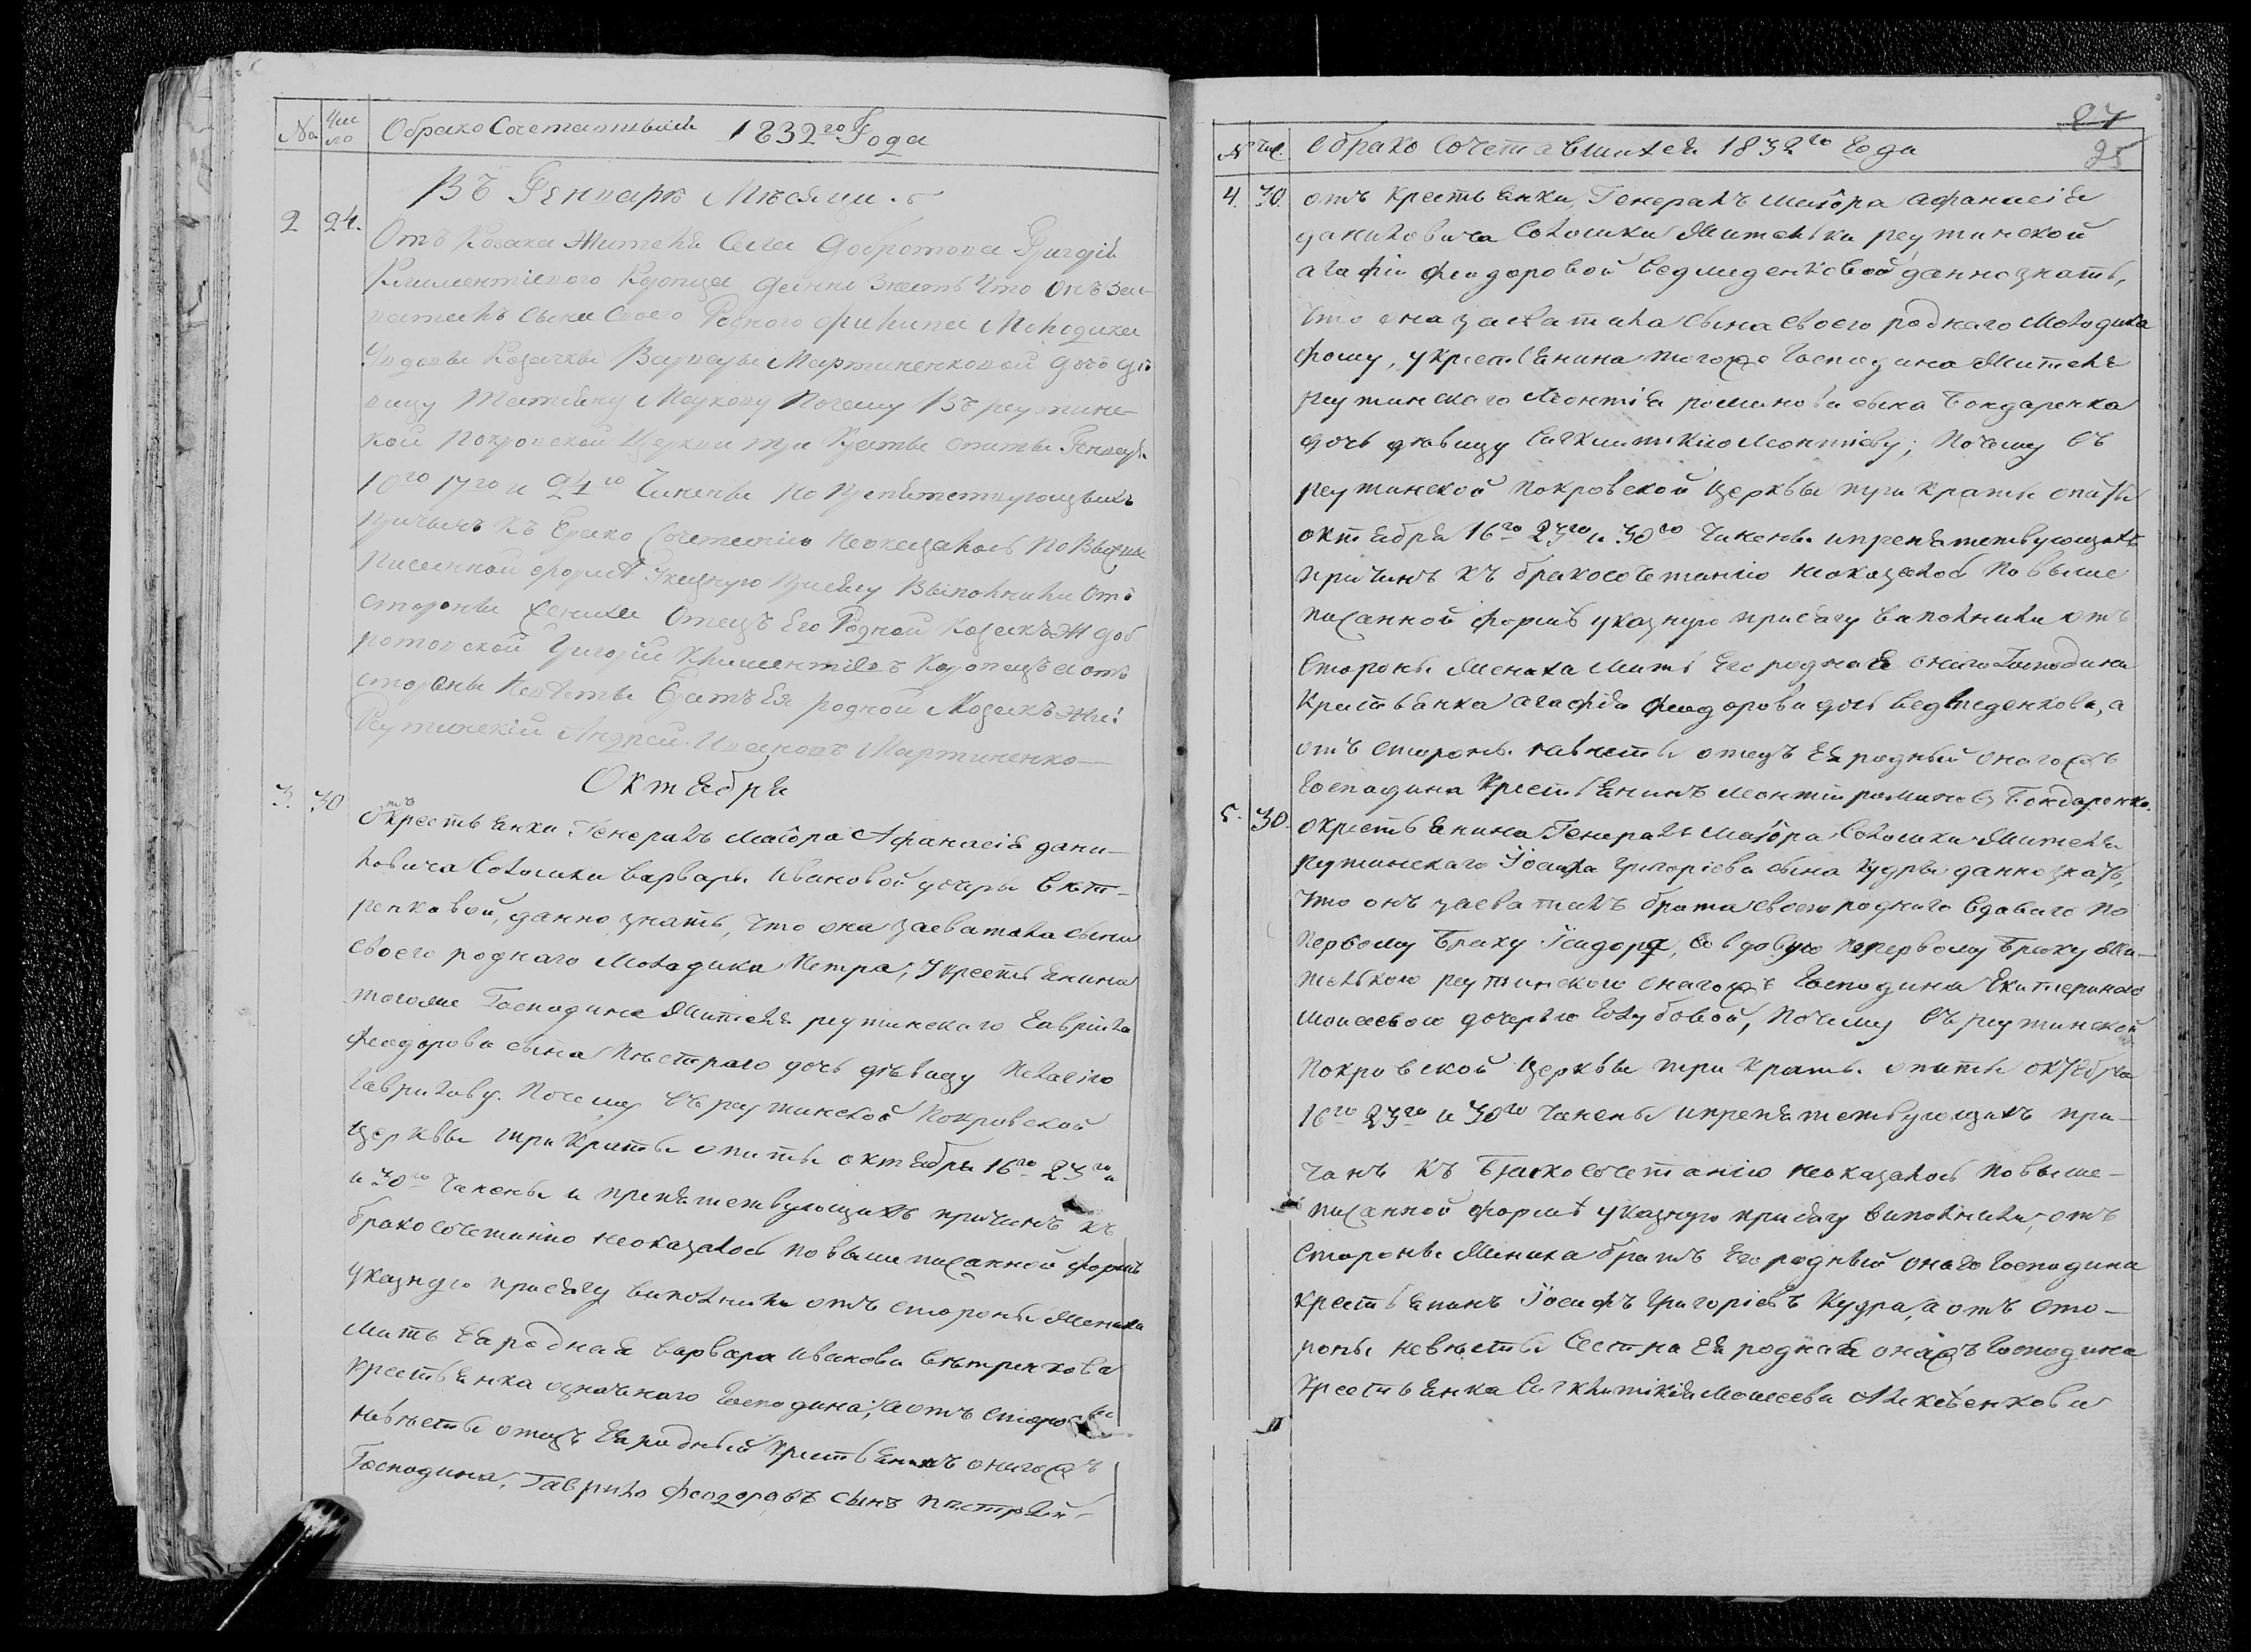 № Чис
ло
Обрако Сочетавшихся 1832го Года
Въ Генварѣ Мѣсяцѣ
2 24. Отъ Козака Жителя Села Добротова
Климентіевого данно Знать Что онъ зас-
ваталъ Сына Своего Родного Филипа Молодика
Удовы Козачки Варвары Мартиненковой дочь дѣ
вицу Татіяну Почему Въ реутинс-
кой Покровской Церкви три Краты опиты Генваря
10го 17го и 24го Чинены но Препятствующихъ
Причинъ къ Брако Сочетанію Неоказалось по Выше
Писанной формѣ Указную Присягу Выполнили Отъ
стороны жениха Отецъ Его Родной Козакъ Ж Доб
ротовской Григорій Климентіевъ а отъ
стороны Невѣсты Братъ Ея родной Козакъ Жи:
Реутинскій Андрей Ивановъ Мартиненко
Октября
3. 30 Отъ крестьянки Генералъ Маіора Афанасія Дани-
ловича Солошки Варвары Ивановой дочеры Вѣт-
ренковой, данно знать, что она засватала сына
своего роднаго Молодика Петра, у крестьянина
тогоже Господина Жителя реутинскаго Гавріила
Феодорова сына Пѣстраго дочь дѣвицу Пелагію
Гаврилову. Почему въ реутинской Покровской
церквы три краты опиты октября 16го 23го
и 30го Чинены и препятствующихъ причинъ къ
бракосочетанію неоказалось по выше писанной формѣ
указную присягу виполнили отъ стороны Жениха
мать Ея родная Варвара Иванова Вѣтренкова
крестьянка означеного Господина, а отъ стороны
невѣсты отецъ Ея родный крестьянинъ оногожъ
Господина, Гаврило Феодоровъ сынъ Пѣстрый
27
25
№ Чис. Обрако Сочетавшихся 1832го Года
4. 30. отъ крестьянки, Генералъ Маіора Афанасія
Даниловича Солошки Жительки реутинской
Агафіи Феодоровой Ведмеденковой данно знать,
что она засватала сына своего роднаго Молодика
Фому, у крестьянина тогоже Господина Жителя
реутинскаго Леонтія романова сына Бондаренка
дочь дѣвицу Леонтіеву; Почему въ
реутинской Покровской церквы три краты опиты
октября 16го 23го и 30го Чинены и препятствующихъ
причинъ къ бракосочетанію неоказалось по выше
писанной формѣ указную присягу виполнили отъ
стороны Жениха мать Его родная оного Господина
крестьянка Агафія Феодорова дочь Ведмеденкова, а
отъ стороны невѣсты отецъ Ея родный оногожъ
Господина крестьянинъ Леонтій романовъ Бондаренко.
5. 30. О крестьянина Генералъ Маіора Солошки Жителя
реутинскаго Іосифа Григоріева сына Кудры данно знать,
что онъ засваталъ брата своего роднаго вдоваго по
первому браку Ісидора, вдовую по первому браку Жи-
телькою реутинскою оногожъ Господина Екатериною
Моисеевою дочерью Голубовой, Почему въ реутинской
Покровской церквы три краты опиты октября
16го 23го и 30го Чинены и препятствующихъ при-
чинъ къ Бракосочетанію неоказалось по выше-
писанной формѣ указную присягу виполнили, отъ
стороны Жениха братъ Его родный онаго Господина
крестьянинъ Іосифъ Григоріевъ Кудра, а отъ сто-
роны невѣсты Сестра Ея родная Господина
крестьянка Моисеева